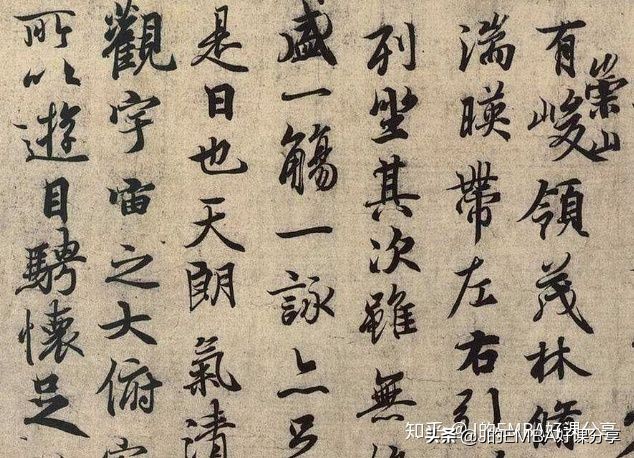 有崇山峻領茂林脩
湍暎帶左右引
列坐其次雖無
盛一觴一詠亦足
是日也天朗氣清
觀宇宙之大俯
所以遊目騁懷足
知乎 @J的EMBA好课分享
头条 @J的EMBA好课分享